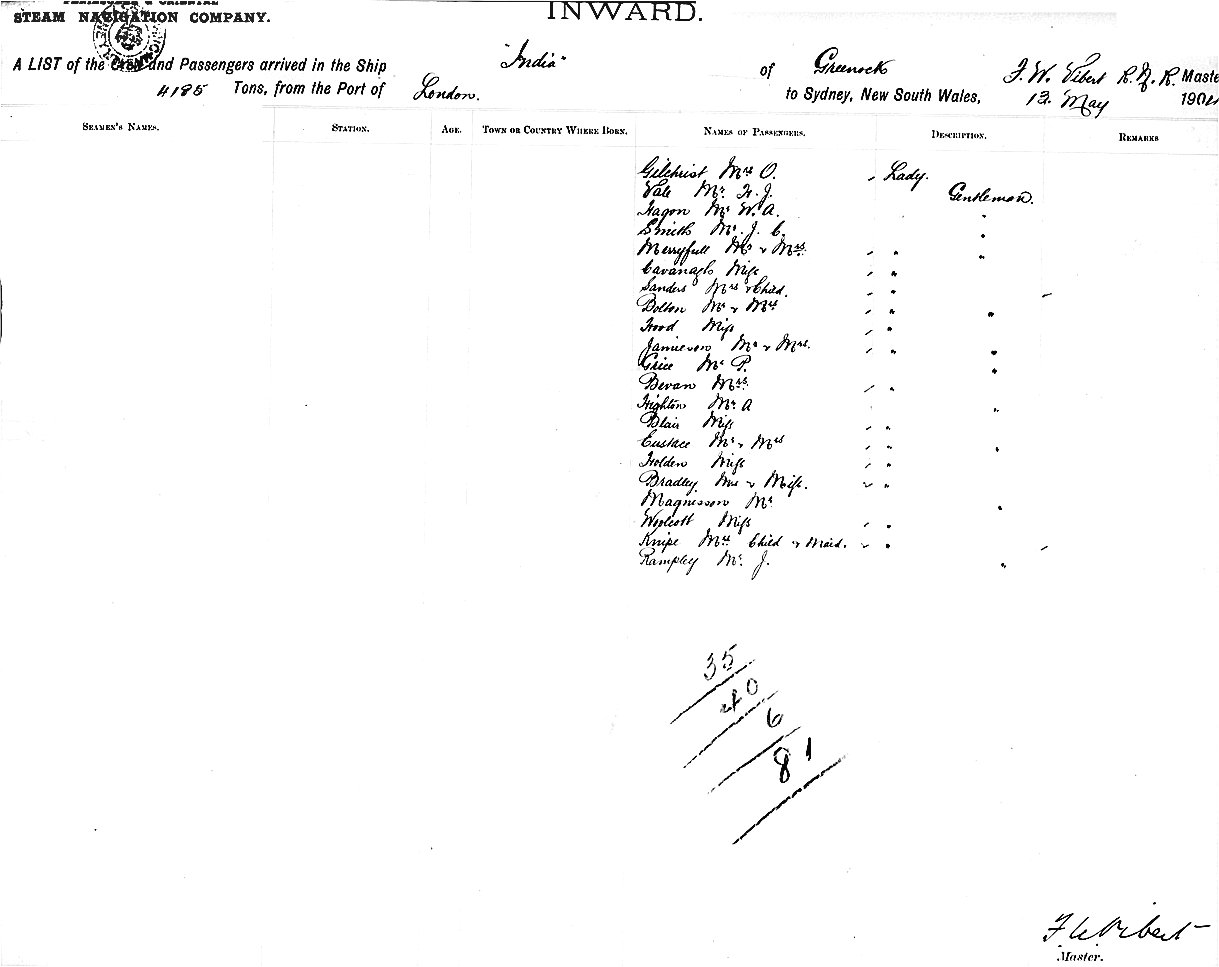 INWARD.
STEAM NAVIGATION COMPANY.
A LIST of the Crew and Passengers arrived in the Ship "India" of Greenock F. W. Vibert R.N.R. Maste
4185 Tons, from the Port of London. to Sydney, New South Wales, 13 May 1904
SEAMEN'S NAMES. STATION. AGE. TOWN OR COUNTRY WHERE BORN. NAMES OF PASSENGERS. DESCRIPTION. REMARKS
Gilchrist Mrs O. Lady.
Vale Mr. H. J. Gentleman.
Hagon Mr W. A. "
Smith Mr. J. C. "
Merryfull Mr & Mrs. " "
Cavanagh Miss "
Sanders Mrs & Child. "
Bolton Mr & Mrs " "
Hood Miss "
Jamieson Mr & Mrs. " "
Grice Mr P. "
Bevan Mrs. "
Highton Mr A "
Blair Miss "
Eustace Mr & Mrs " "
Holden Miss "
Bradley Mrs & Miss. "
Magnisson Mr "
Woolcott Miss "
Knipe Mrs Child & Maid. "
Rampley Mr. J. "
35
40
6
81
F W Vibert
Master.